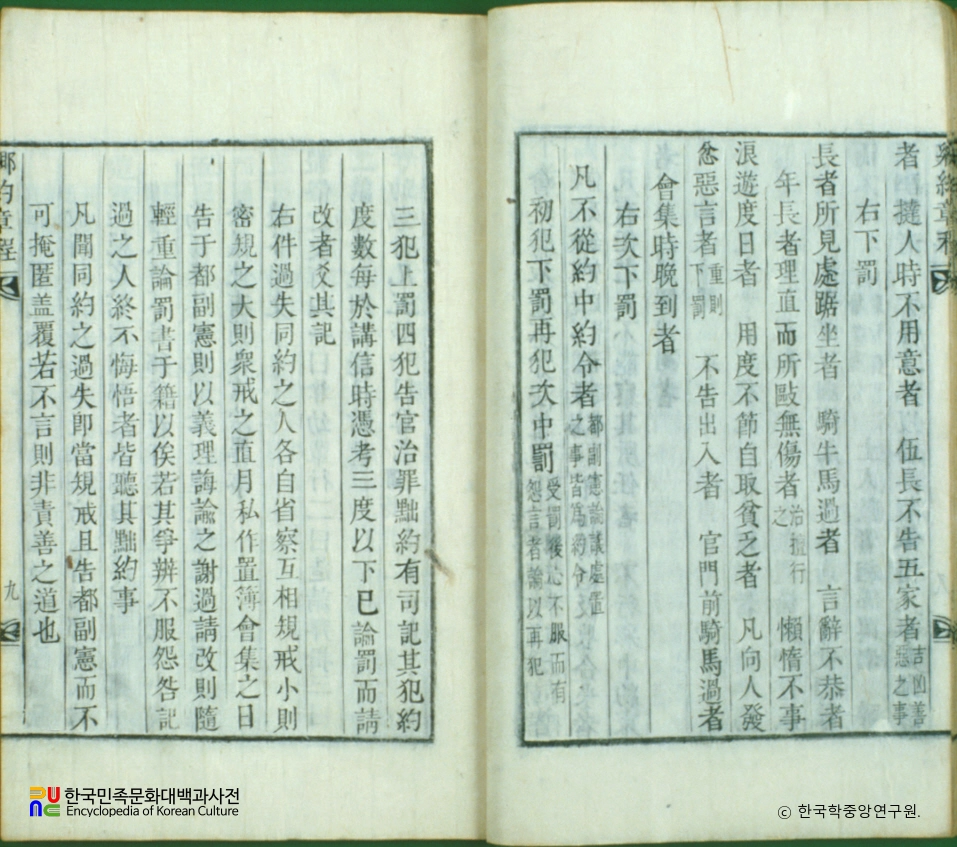 者 撻人時不用意者 伍長不告五家者吉凶善惡之事
右下罰
長者所見處踞坐者 騎牛馬過者 言辭不恭者
年長者理直而所毆無傷者治之擅行 懶惰不事
浪遊度日者 用度不節自取貧乏者 凡向人發
忿惡言者重則下罰 不告出入者 官門前騎馬過者
會集時晩到者
右次下罰
凡不從約中約令者都副憲論議處置之事皆爲約令
初犯下罰再犯次中罰受罰後心不服而有怨言者論以再犯
三犯上罰四犯告官治罪黜約有司記其犯約
度數每於講信時憑考三度以下已論罰而請
改者爻其記
右件過失同約之人各自省察互相規戒小則
密規之大則衆戒之直月私作置簿會集之日
告于都副憲則以義理誨諭之謝過請改則隨
輕重論罰書于籍以俟若其爭辨不服怨咎記
過之人終不悔悟者皆聽其黜約事
凡聞同約之過失卽當規戒且告都副憲而不
可掩匿盖覆若不言則非責善之道也
鄕約章程
九
한국민족문화대백과사전
Encyclopedia of Korean Culture
© 한국학중앙연구원.